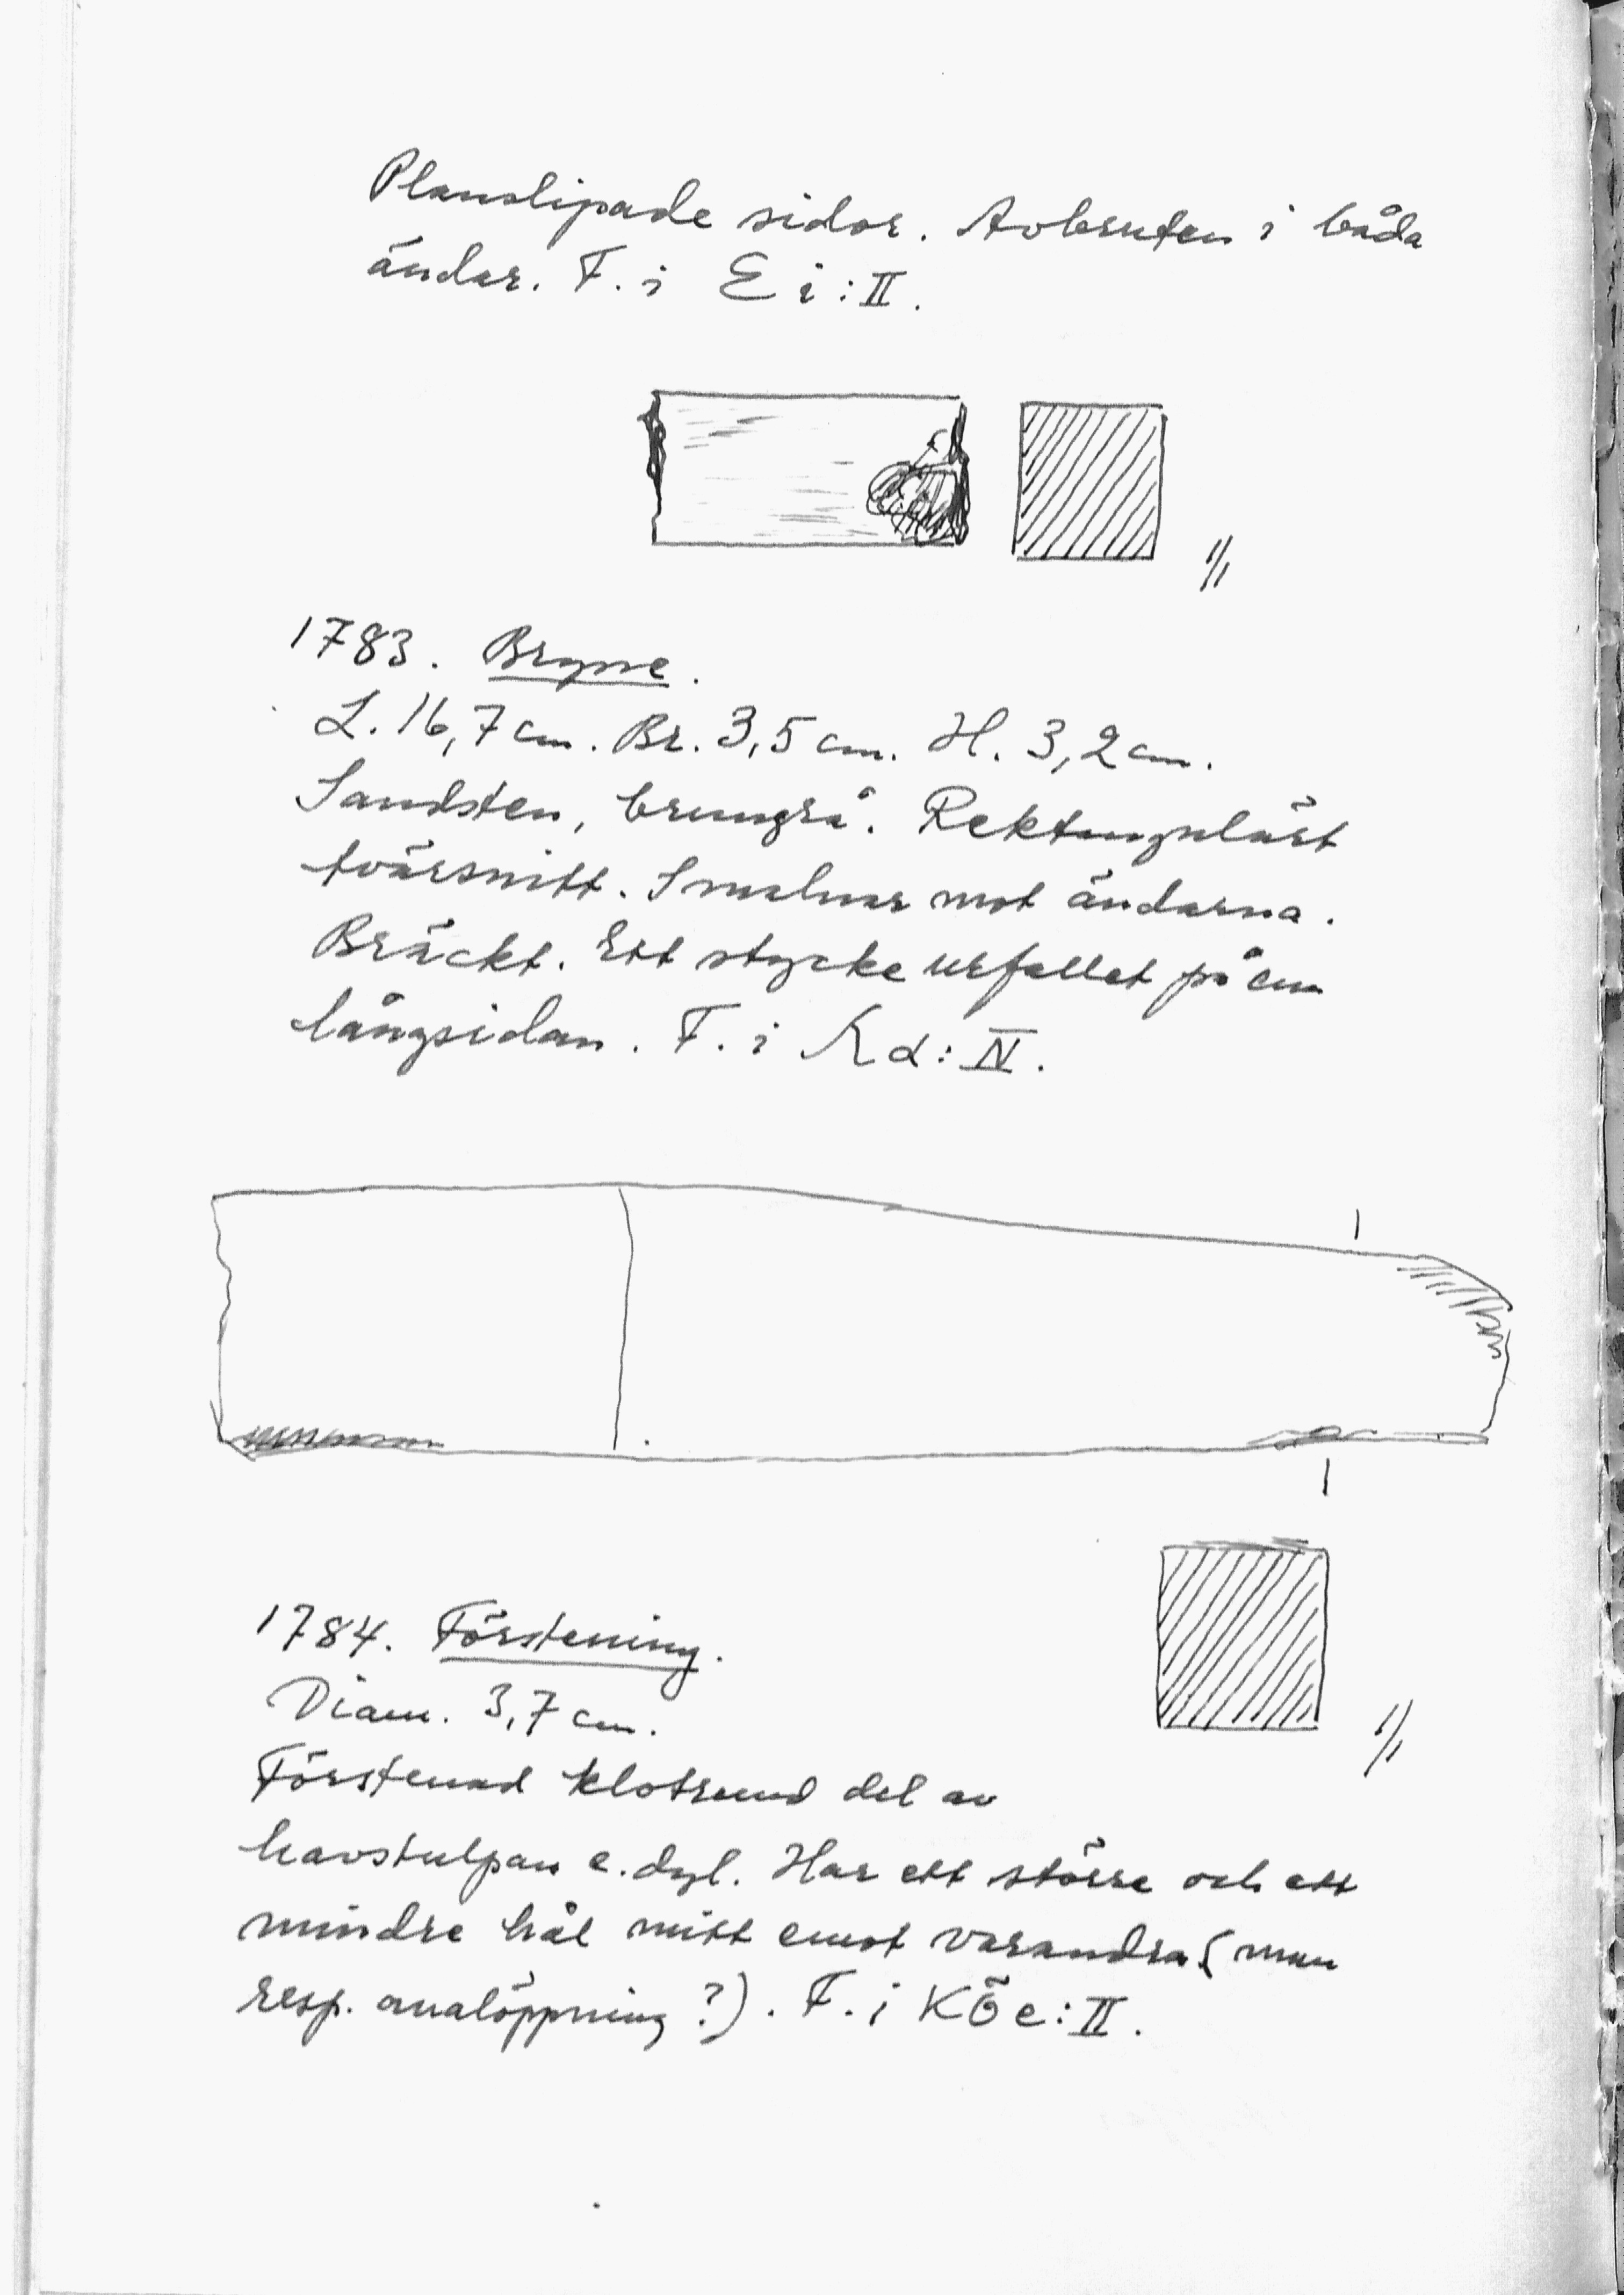 Planslipade sidor. Avbruten i båda
ändar. F. i E i : II.
1/1
1783. Bryne.
L. 16,7 cm. Br. 3,5 cm. H. 3,2 cm.
Sandsten, brungrå. Rektangulärt
tvärsnitt. Smalnar mot ändarna.
Bräckt. Ett stycke urfallet på ena
långsidan. F. i Ä d : IV.
1784. Förstening.
Diam. 3,7 cm.
1/1
Förstenad klotrund del av
havstulpan e. dyl. Har ett större och ett
mindre hål mitt emot varandra (mun
resp. analöppning ?). F. i KÖ e : II.